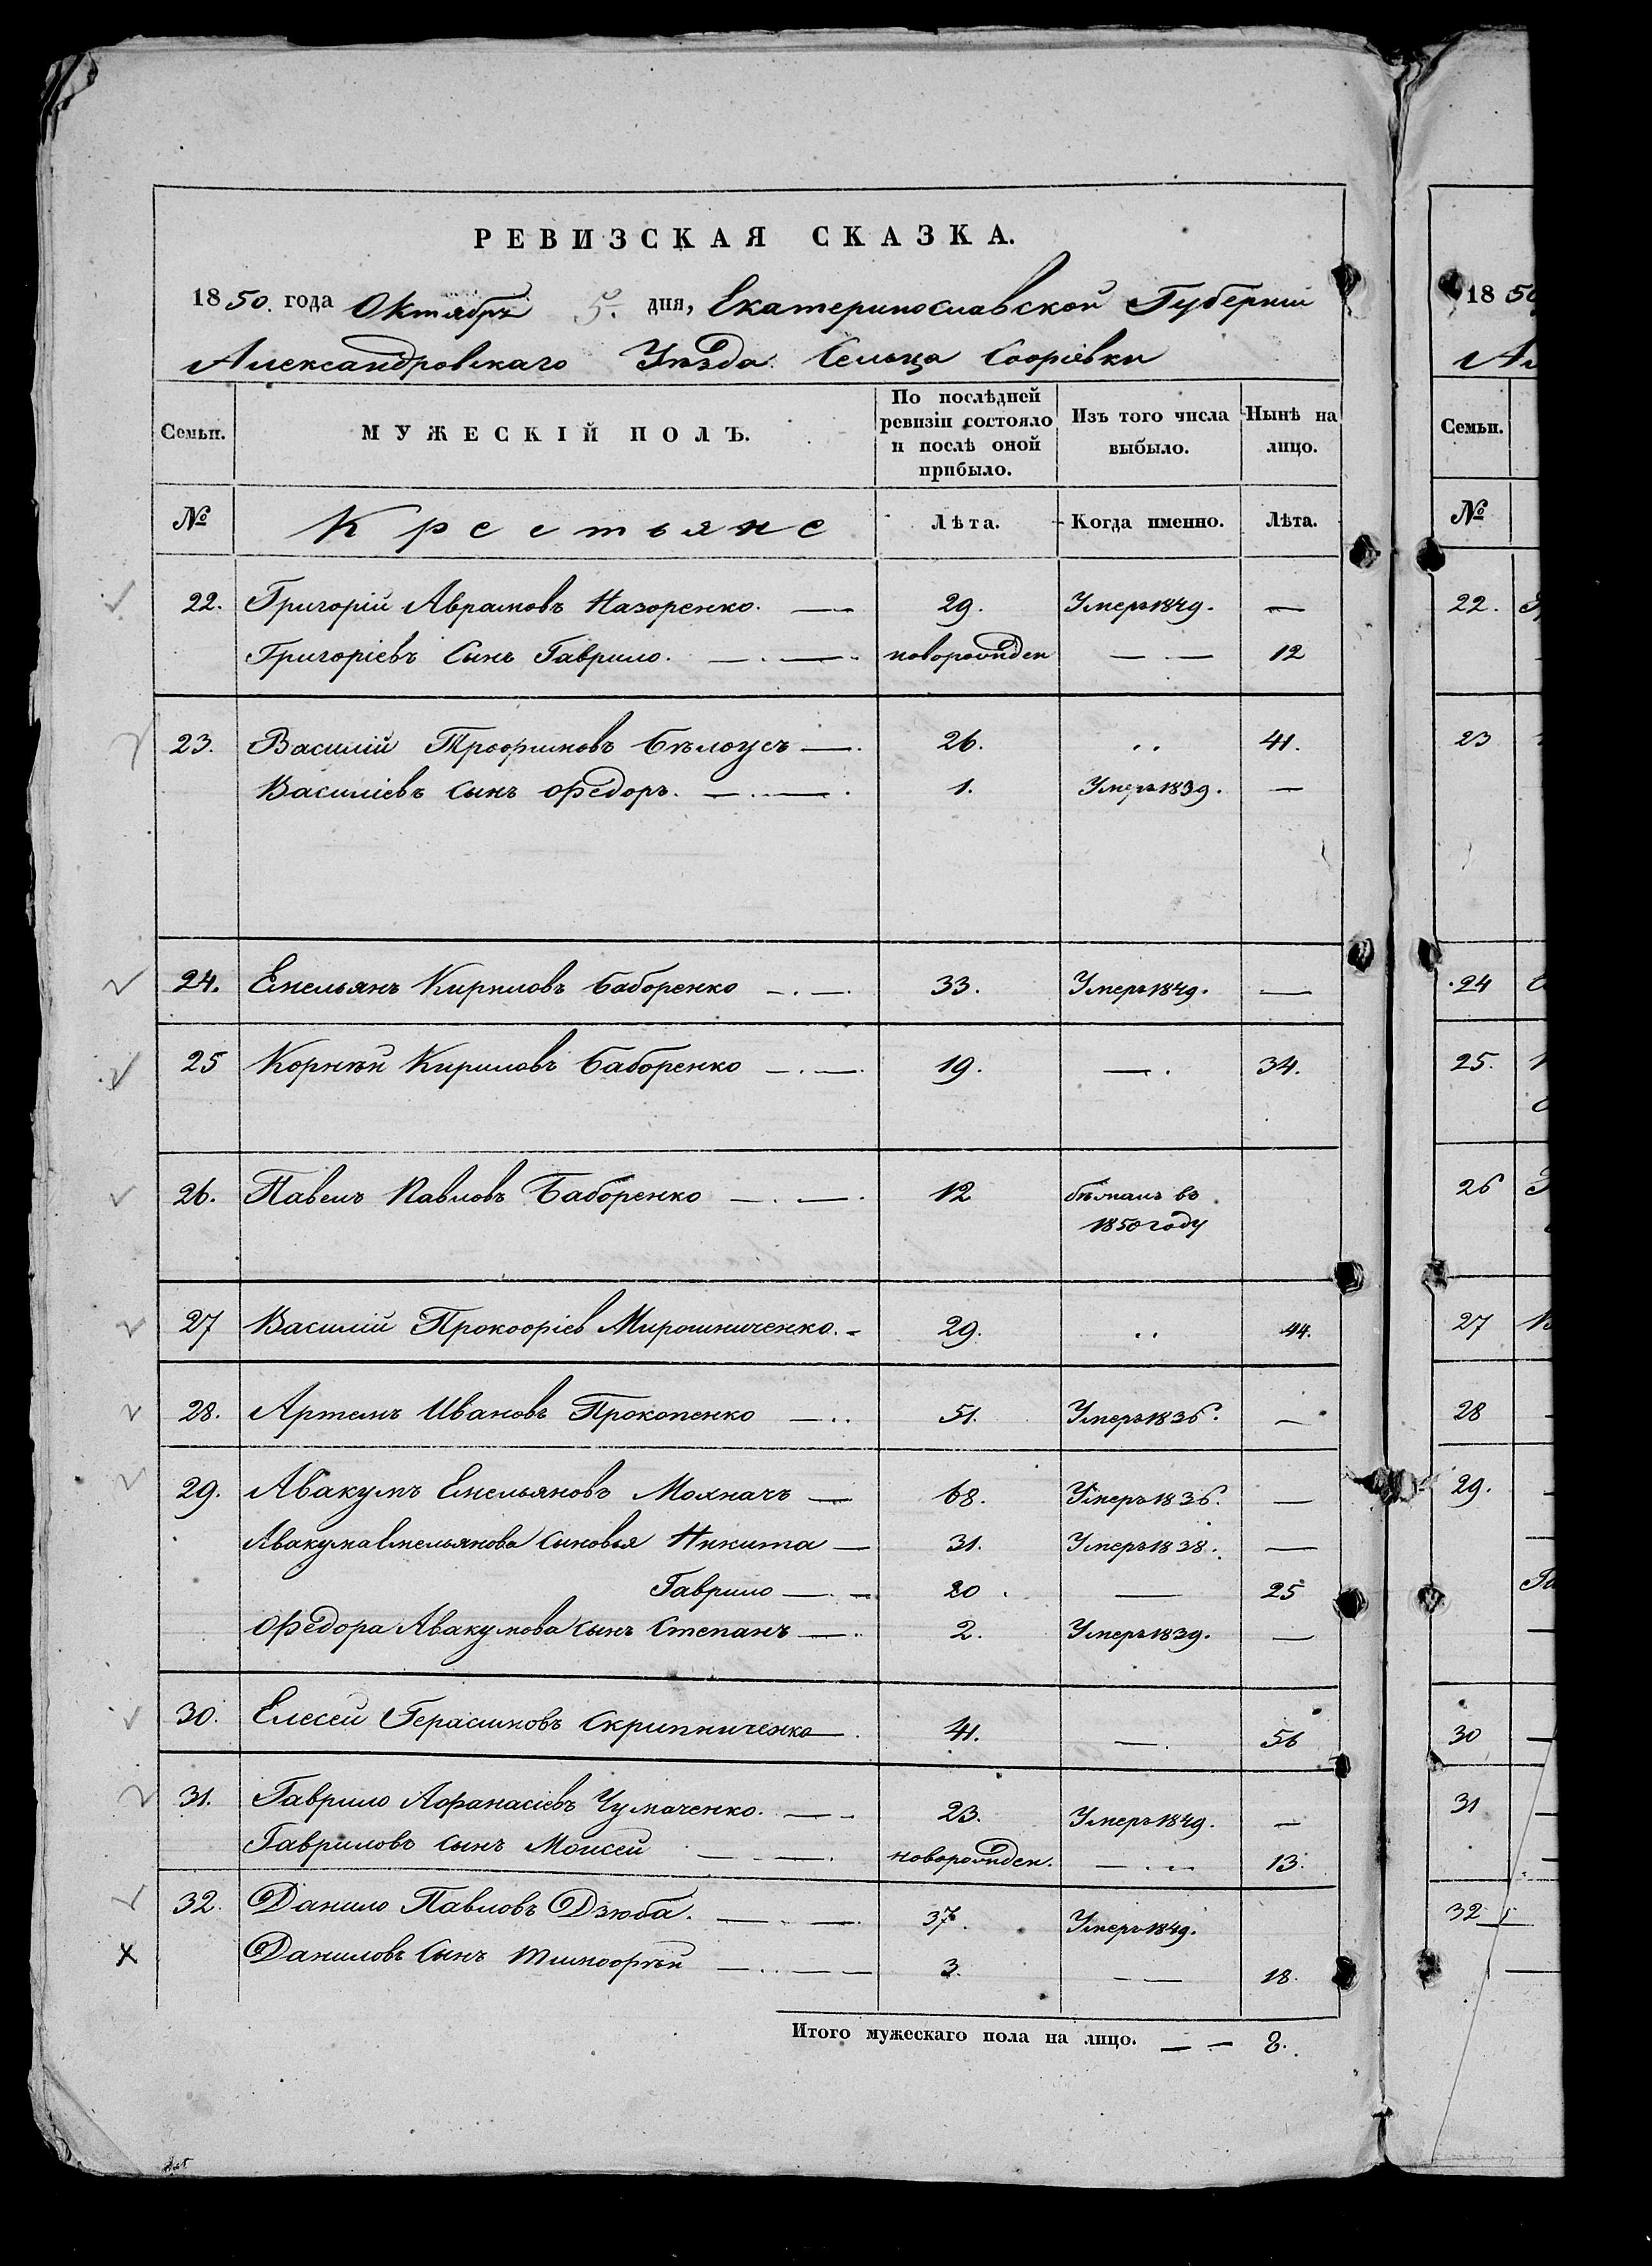 РЕВИЗСКАЯ СКАЗКА.
1850. года Октября 5. дня, Екатеринославской Губерніи
Александровскаго Уѣзда. Сельца Софіевки
Семьи. МУЖЕСКІЙ ПОЛЪ. По послѣдней ревизіи состояло и послѣ оной прибыло. Изъ того числа выбыло. Нынѣ на лицо.
№ Крестьяне Лѣта. Когда именно. Лѣта.
22. Григорій Аврамовъ Назоренко. — 29. Умеръ 1849. —
Григоріевъ Сынъ Гаврило. — . — новорожден — — 12
23. Василій Трофимовъ Бѣлоусъ — . 26. . . 41.
Василіевъ сынъ Ѳедоръ. — . — . 1. Умеръ 1839. —
24. Емельянъ Кириловъ Баборенко — . — . 33. Умеръ 1849. —
25 Корнѣй Кириловъ Баборенко — . — . 19. — . 34.
26. Павелъ Павловъ Баборенко — . — . 12 бѣжалъ въ
1850 году
27 Василій Прокофіев Мирошниченко. - 29. . . 44.
28. Артемъ Ивановъ Прокопенко — . . 51. Умеръ 1836. —
29. Авакумъ Емельяновъ Мохначъ — 68. Умеръ 1836. —
Авакума Емельянова сыновья Никита — 31. Умеръ 1838. —
Гаврило — . — 20 . — 25
Ѳедора Авакумова сынъ Степанъ — . 2. Умеръ 1839. —
30. Елесей Герасимовъ Скрипниченко — . 41. — . 56
31. Гаврило Афанасіевъ Чумаченко. — - 23. Умеръ 1849. —
Гавриловъ сынъ Моисей — . — . новорожден. — . — 13.
32. Данило Павловъ Дзюба. — . — . 37. Умеръ 1849.
Даниловъ Сынъ Тимофѣй — . — — 3. — — 18.
Итого мужескаго пола на лицо. — — 8.
1850
Семьи.
№
22.
23
24
25.
26
27
28
29.
30
31
32